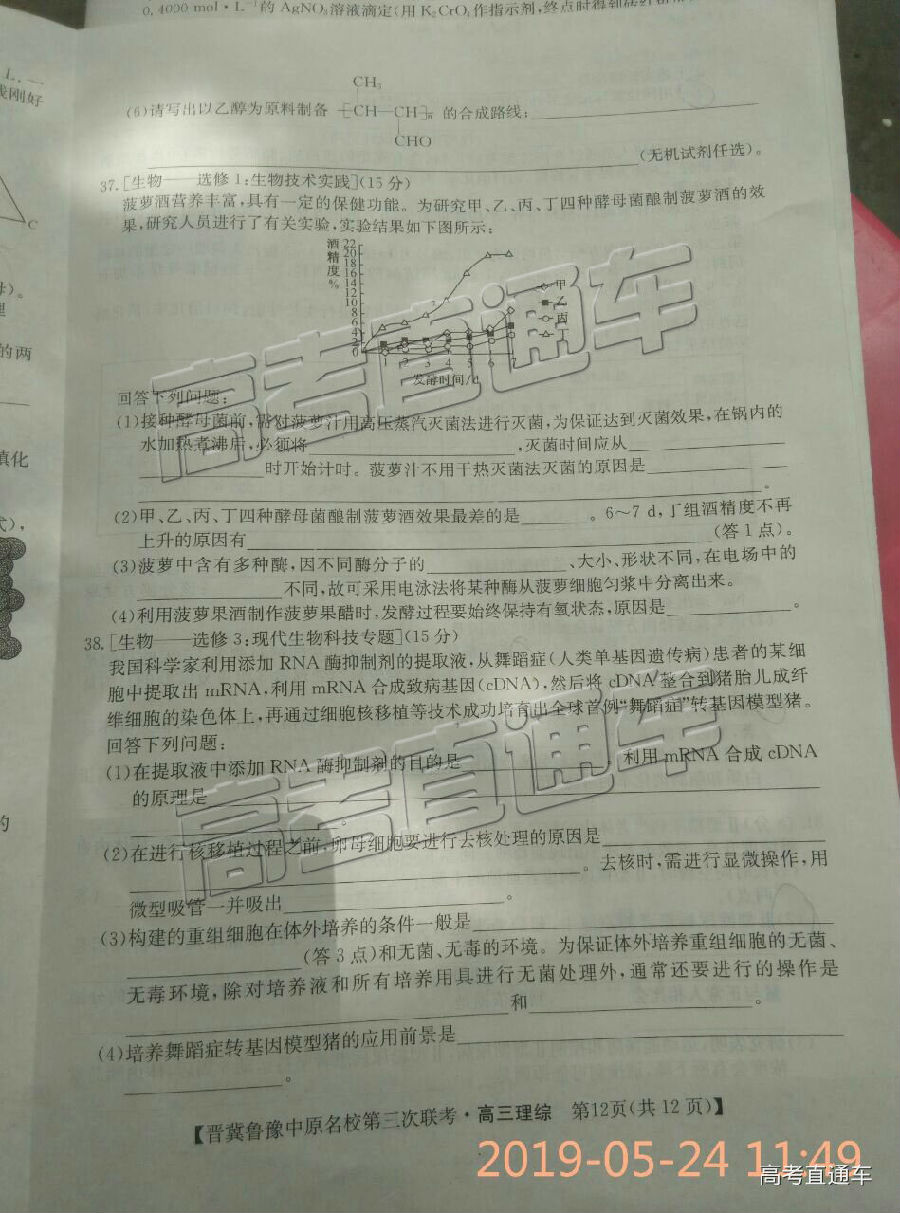 0.4000 mol·L⁻¹的 AgNO₃溶液滴定(用 K₂CrO₄作指示剂,终点时得到砖红
L.
刚好
C
的两
填化
式),
的
CH₃
(6)请写出以乙醇为原料制备 ⁅CH—CH⁆ₙ 的合成路线:
CHO
(无机试剂任选)。
37.[生物——选修1:生物技术实践](15分)
菠萝酒营养丰富,具有一定的保健功能。为研究甲、乙、丙、丁四种酵母菌酿制菠萝酒的效
果,研究人员进行了有关实验,实验结果如下图所示:
酒精度%
22
20
18
16
14
12
10
8
6
4
2
0
1 2 3 4 5 6 7
发酵时间/d
甲
乙
丙
丁
回答下列问题:
(1)接种酵母菌前,需对菠萝汁用高压蒸汽灭菌法进行灭菌,为保证达到灭菌效果,在锅内的
水加热煮沸后,必须将____,灭菌时间应从____
____时开始计时。菠萝汁不用干热灭菌法灭菌的原因是____
____。
(2)甲、乙、丙、丁四种酵母菌酿制菠萝酒效果最差的是____。6~7 d,丁组酒精度不再
上升的原因有____(答1点)。
(3)菠萝中含有多种酶,因不同酶分子的____、大小、形状不同,在电场中的
____不同,故可采用电泳法将某种酶从菠萝细胞匀浆中分离出来。
(4)利用菠萝果酒制作菠萝果醋时,发酵过程要始终保持有氧状态,原因是____。
38.[生物——选修3:现代生物科技专题](15分)
我国科学家利用添加 RNA 酶抑制剂的提取液,从舞蹈症(人类单基因遗传病)患者的某细
胞中提取出 mRNA,利用 mRNA 合成致病基因(cDNA),然后将 cDNA 整合到猪胎儿成纤
维细胞的染色体上,再通过细胞核移植等技术成功培育出全球首例“舞蹈症”转基因模型猪。
回答下列问题:
(1)在提取液中添加 RNA 酶抑制剂的目的是____,利用 mRNA 合成 cDNA
的原理是____
(2)在进行核移植过程之前,卵母细胞要进行去核处理的原因是____
____。去核时,需进行显微操作,用
微型吸管一并吸出____。
(3)构建的重组细胞在体外培养的条件一般是____
____(答3点)和无菌、无毒的环境。为保证体外培养重组细胞的无菌、
无毒环境,除对培养液和所有培养用具进行无菌处理外,通常还要进行的操作是
____和____。
(4)培养舞蹈症转基因模型猪的应用前景是____
____。
【晋冀鲁豫中原名校第三次联考·高三理综 第12页(共12页)】
高考直通车
高考直通车
2019-05-24 11:49
高考直通车